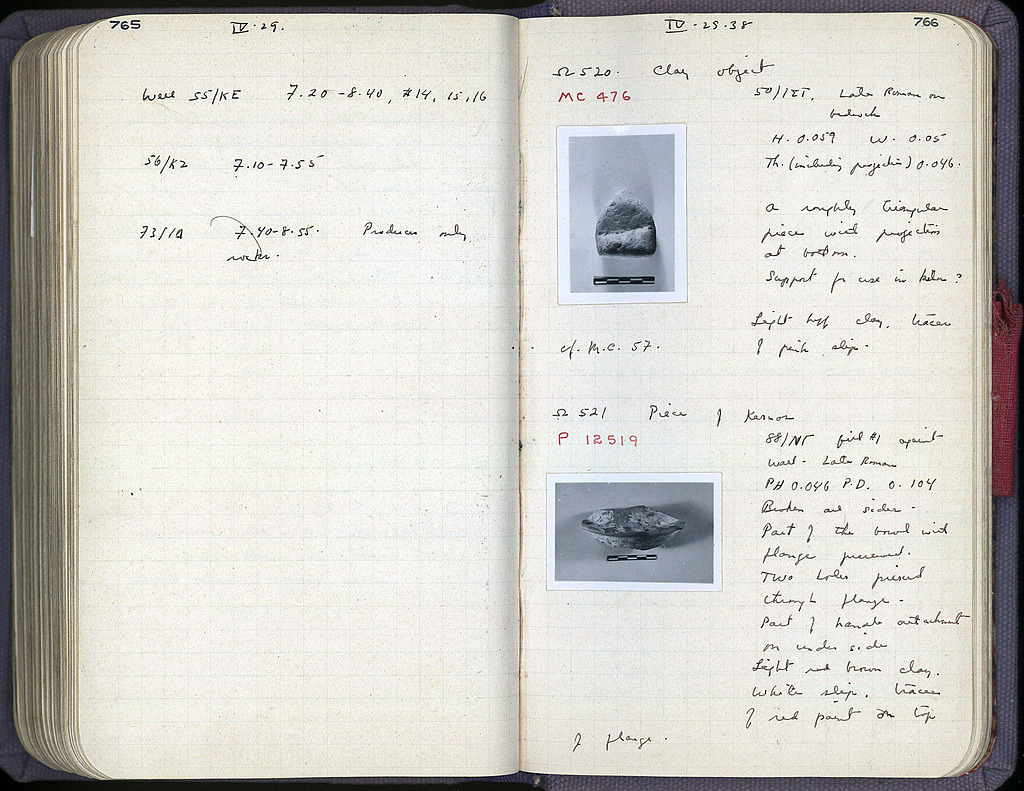 765
IV · 29.
Well 55/KE 7.20 - 8.40, #14, 15, 16
56/KZ 7.10 - 7.55
73/1Δ 7.40 - 8.55. Produces only
rocks.
IV - 29 - 38
766
Ω 520. Clay object
MC 476
50/ΙΣΤ. Late Roman on
bedrock
H. 0.059 W. 0.05
Th. (including projection) 0.046.
A roughly triangular
piece with projection
at bottom.
Support for use in kiln?
Light buff clay, traces
of pink slip.
cf. M.C. 57.
Ω 521 Piece of Kernos
P 12519
88/ΝΓ fill #1 against
wall - Late Roman
PH 0.046 P.D. 0.104
Broken all sides -
Part of the bowl with
flange preserved.
Two holes pierced
through flange -
Part of handle attachment
on under side
Light red brown clay.
White slip, traces
of red paint on top
of flange.